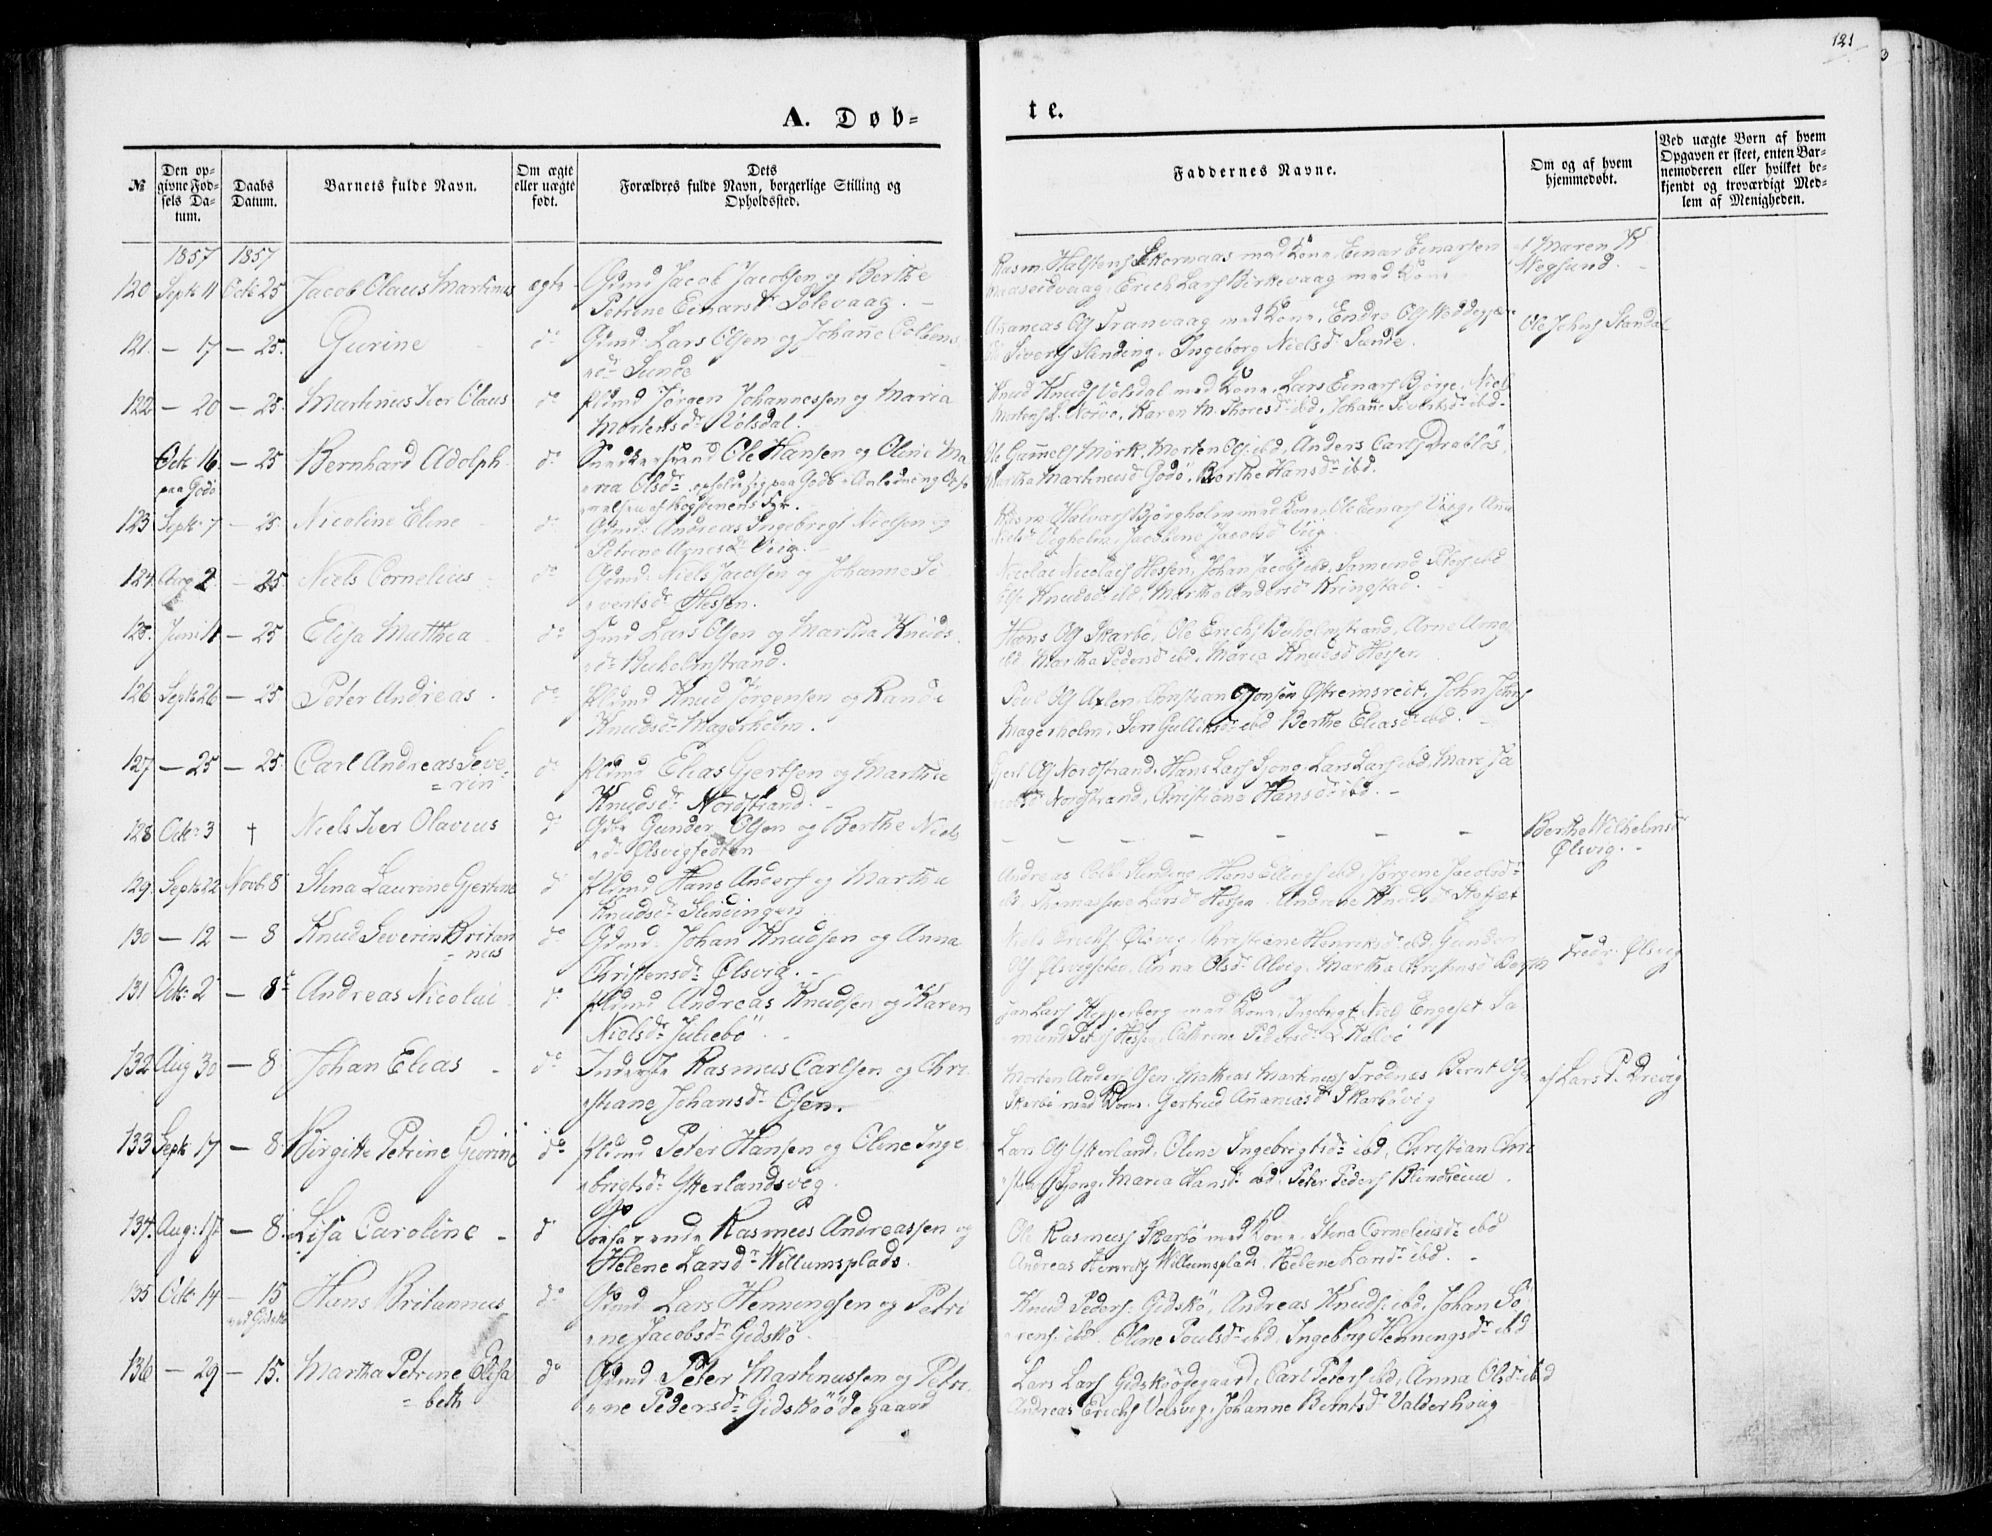 121
A. Døb=
te.
№
Den op-
givne Fød-
sels Da-
tum.
Daabs
Datum.
Barnets fulde Navn.
Om ægte
eller uægte
født.
Dets
Forældres fulde Navn, borgerlige Stilling og
Opholdssted.
Faddernes Navne.
Om og af hvem
hjemmedøbt.
Ved uægte Børn af hvem
Opgaven er skeet, enten Bar-
nemoderen eller hvilket be-
kjendt og troværdigt Med-
lem af Menigheden.
1857 1857
120 Septr 11 Octr 25 Jacob Claus Martinus ægte Gdmd Jacob Jacobsen og Berthe
Petrine Einarsdr Solevaag.
Rasm. Halstens Skornaas med Kone, Einar Einarsen
Maaseidvaag, Erich Lars Birkevaag med Kone
af Maren K
Vegsund.
121. — 17 — 25. Gurine do Gdmd Lars Olsen og Johane Colbens
dr Sunde
Ananias Ols Tranvaag med Kone, Endre Ols
Siverts Slinding, Ingeborg Nielsdr Sunde.
Ole Johns Standal
122 — 20 — 25. Martinus Iver Olaus do Plmd Jørgen Johannessen og Maria
Mortensdr Volsdal.
Knud Knuds Volsdal med Kone, Lars Einars Bjørge, Niels
Mortens L. Nørve, Karen M. Thoresdr ibd, Johane Sivertsdr ibd
Octr 16 — 25 Bernhard Adolph do Snedkersvend Ole Hansen og Oline Ma
paa Godø
ria Olsdr, opholdt sig paa Godø i Anledning
af Sygdommens
Ole Gunnels Mørk, Morten Ols ibd, Anders Carls Drabløs,
Martha Martinusdr Godø, Berthe Hansdr ibd.
123 Septr 7 — 25 Nicoline Eline do Gdmd: Andreas Ingebrigt Nielsen og
Petrine Arnesdr Viig.
Rasm. Halvars Bjørgholm med Kone, Ole Einars Viig, Anne
Nielsdr Vegholm, Jacobine Jacobsdr Viig.
124. Aug 2 — 25 Niels Cornelius do Gdmd: Niels Jacobsen og Johanne Si
vertsdr Hessen.
Nicolai Nicolais Hessen, Johan Jacobs ibd, Samund Peters ibd
Else Knudsdr ibd, Martha Andersdr Kringstad.
125. Juni 11 — 25 Elisa Matthea do Hmd Lars Olsen og Martha Knuds
dr Buholmstrand.
Hans Ols Skarbø, Ole Erichs Buholmstrand, Arne Arnes
ibd, Martha Pedersdr ibd, Maria Knudsdr Hessen
126 Septr 26 — 25 Peter Andreas do Plmd Knud Jørgensen og Randi
Knudsdr Magerholm.
Poul Ols Axlen, Christian Jonsen Østreimsreit, John Johns
Magerholm, Siri Gulliksdr ibd, Berthe Eliasdr ibd.
127 — 25 — 25 Carl Andreas Seve
= rin
do Plmd Elias Gjertsen og Marthe
Knudsdr Nordstrand.
Gjert Ols Nordstrand, Hans Lars Gjong, Lars Lars ibd, Mari Ja
cobsdr Nordstrand, Christiane Hansdr ibd.
128 Octr 3 † Niels Iver Olavius do Gdbr Gunder Olsen og Berthe Niels
dr Ølsvigsedten
— — — — —
Berthe Wilhelmsdr
Ølsvig.
129. Septr 22 Novbr 8 Stina Laurine Gjertine do Plmd Hans Anders og Martha
Knudsdr Slindingen
Andreas Slinding, Hans Ellings ibd, Jørgine Jacobsdr
ibd, Thomassine Larsdr Hessen, Andrine Knudsdr
130 — 12 — 8 Knud Severin Britan
= nus
do Gdmd. Johan Knudsen og Anna
Christensdr Ølsvig.
Niels Erichs Ølsvig, Christiane Henriksdr ibd, Gunder
Ols Ølsvigsetre, Anna Olsdr Alvig, Martha Christensdr
Fredr: Ølsvig
131 Octr. 2 — 8 Andreas Nicolai do Plmd Andreas Knudsen og Karen
Nielsdr Juliebø
Jan Lars Hepperberg med Kone, Ingebrigt Niels Engeset, Sa
mund Peters Hessen, Cathrine Pedersdr L. Kalvø
132 Aug 30 — 8 Johan Elias do Inderste Rasmus Carlsen og Chri
stiane Johansdr Osen.
Morten Anders Osen, Mathias Martinus Frødnes, Bernt Ols
Skarbø med Kone, Gertrud Ananiasdr Skarbøvig
af Lars P. Brevig
133 Septr 17 — 8 Birgitte Petrine Gurine do Plmd Peter Hansen og Oline Inge
brigtsdr Ytterlandsvig.
Lars Ols Ytterland, Oline Ingebrigtsdr ibd, Christian Chri
stians Gjong, Maria Hansdr ibd, Peter Peders Blindheim.
134. Aug: 15 — 8. Lisa Caroline do Søefarende Rasmus Andreassen og
Helene Larsdr Willumsplads.
Ole Rasmuss Skarbø med Kone, Stina Corneliusdr ibd
Andreas Henriks Willumsplads, Helene Larsdr ibd.
135 Octr 14 — 15 Hans Britannus do Gdmd Lars Henningsen og Petri
ved Gidskø
ne Jacobsdr Gidskø
Knud Peders: Gidskø, Andreas Knuds: ibd, Johan Sø
rens: ibd, Oline Poulsdr ibd, Ingeborg Henningsdr ibd
136 — 29 — 15. Martha Petrine Elisa
= beth
do Gdmd Peter Martinussen og Petri
ne Pedersdr Gidskøødegaard
Lars Lars Gidskøødegaard, Carl Peters ibd, Anna Olsdr ibd
Andreas Erichs Velsvig, Johanne Berntsdr Valderhoug